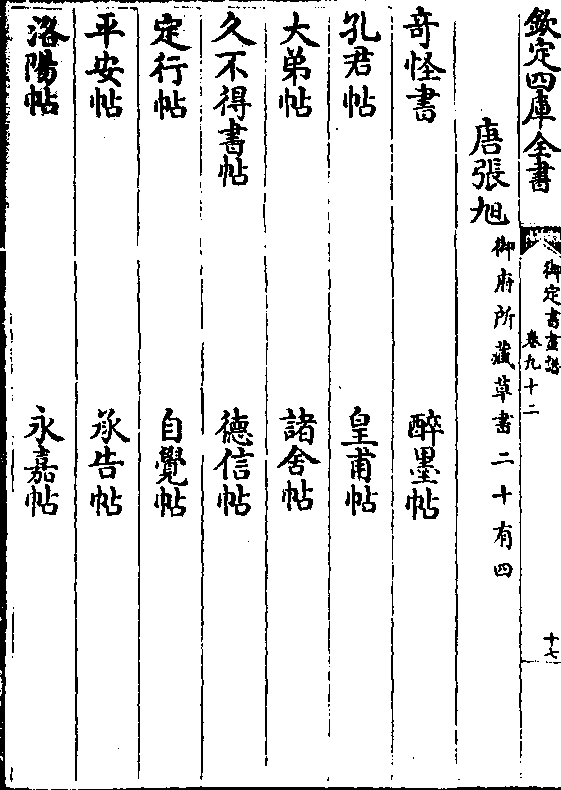 欽定四庫全書
御定書畫譜
卷九十二
十七
唐張旭
御府所藏草書二十有四
奇怪書
醉墨帖
孔君帖
皇甫帖
大弟帖
諸舍帖
久不得書帖
德信帖
定行帖
自覺帖
平安帖
承告帖
洛陽帖
永嘉帖